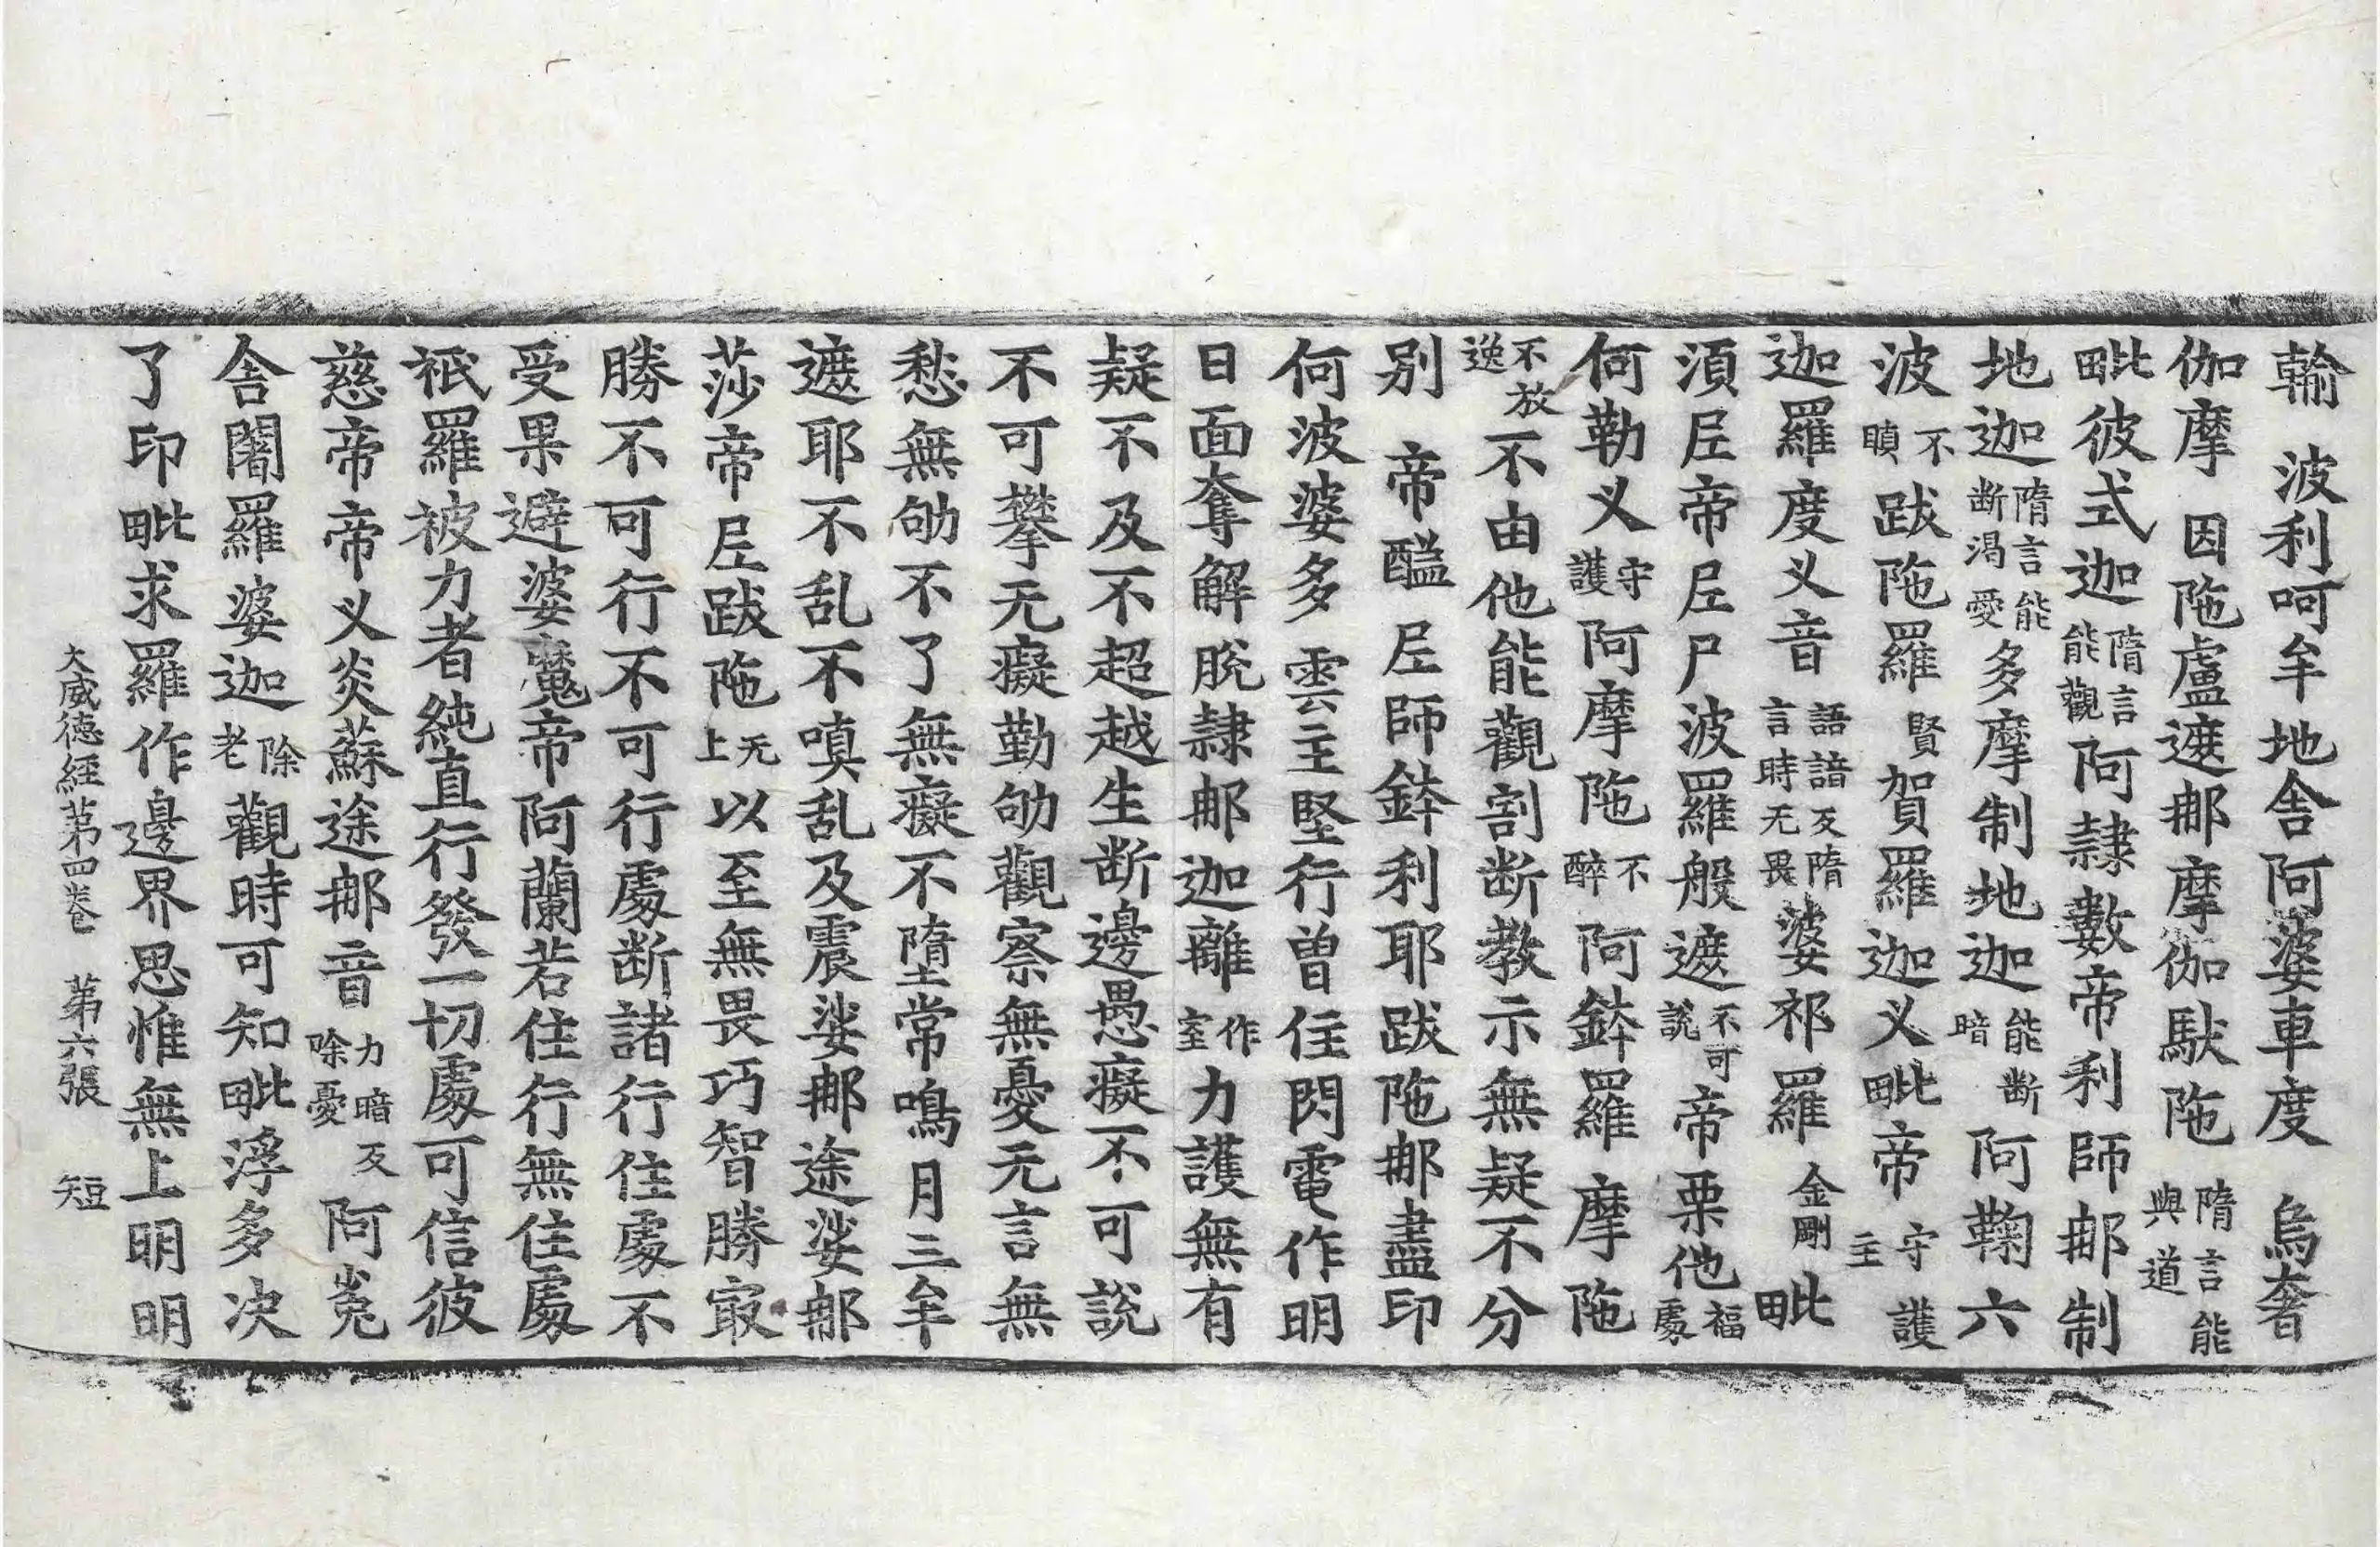 輸 波利呵牟地舍阿婆車度 烏奢
伽摩 因陁盧遮𨙻摩伽䭾陁隋言能與道
毗彼式迦隋言能觀阿隷數帝利師𨙻制
地迦隋言能断渇愛多摩制地迦能断暗阿鞠六
波不瞋跋陁羅賢賀羅迦义毗帝守護主
迦羅度义音語諳及隋言時无畏婆祁羅金剛毗
湏𡰱帝𡰱尸波羅般遮不可說帝栗他福䖏
何勒义守護阿摩陁不醉阿鉢羅摩陁
不放逸不由他能觀割断教示無疑不分
別 帝醯𡰱師鉢利耶跋陁𨙻盡印
何波婆多雲主堅行曽住閃電作明
日面奪解脫隷𨙻迦離作室力護無有
疑不及不超越生断邊愚癡不可說
不可攀无癡勤劬觀察無憂无言無
愁無劬不了無癡不墮常鳴月三牟
遮耶不乱不嗔乱及震娑𨙻途娑𨙻
莎帝𡰱跋陁无上以至無畏巧智勝㝡
勝不可行不可行䖏断諸行住䖏不
受果避婆魔帝阿蘭若住行無住䖏
衹羅被力者純直行發一切䖏可信彼
慈帝帝义炎蘇途𨙻音力暗及除憂阿㝹
舍闍羅婆迦除老觀時可知毗浮多决
了印毗求羅作邊界思惟無上明明
大威德經苐四卷 苐六張 短